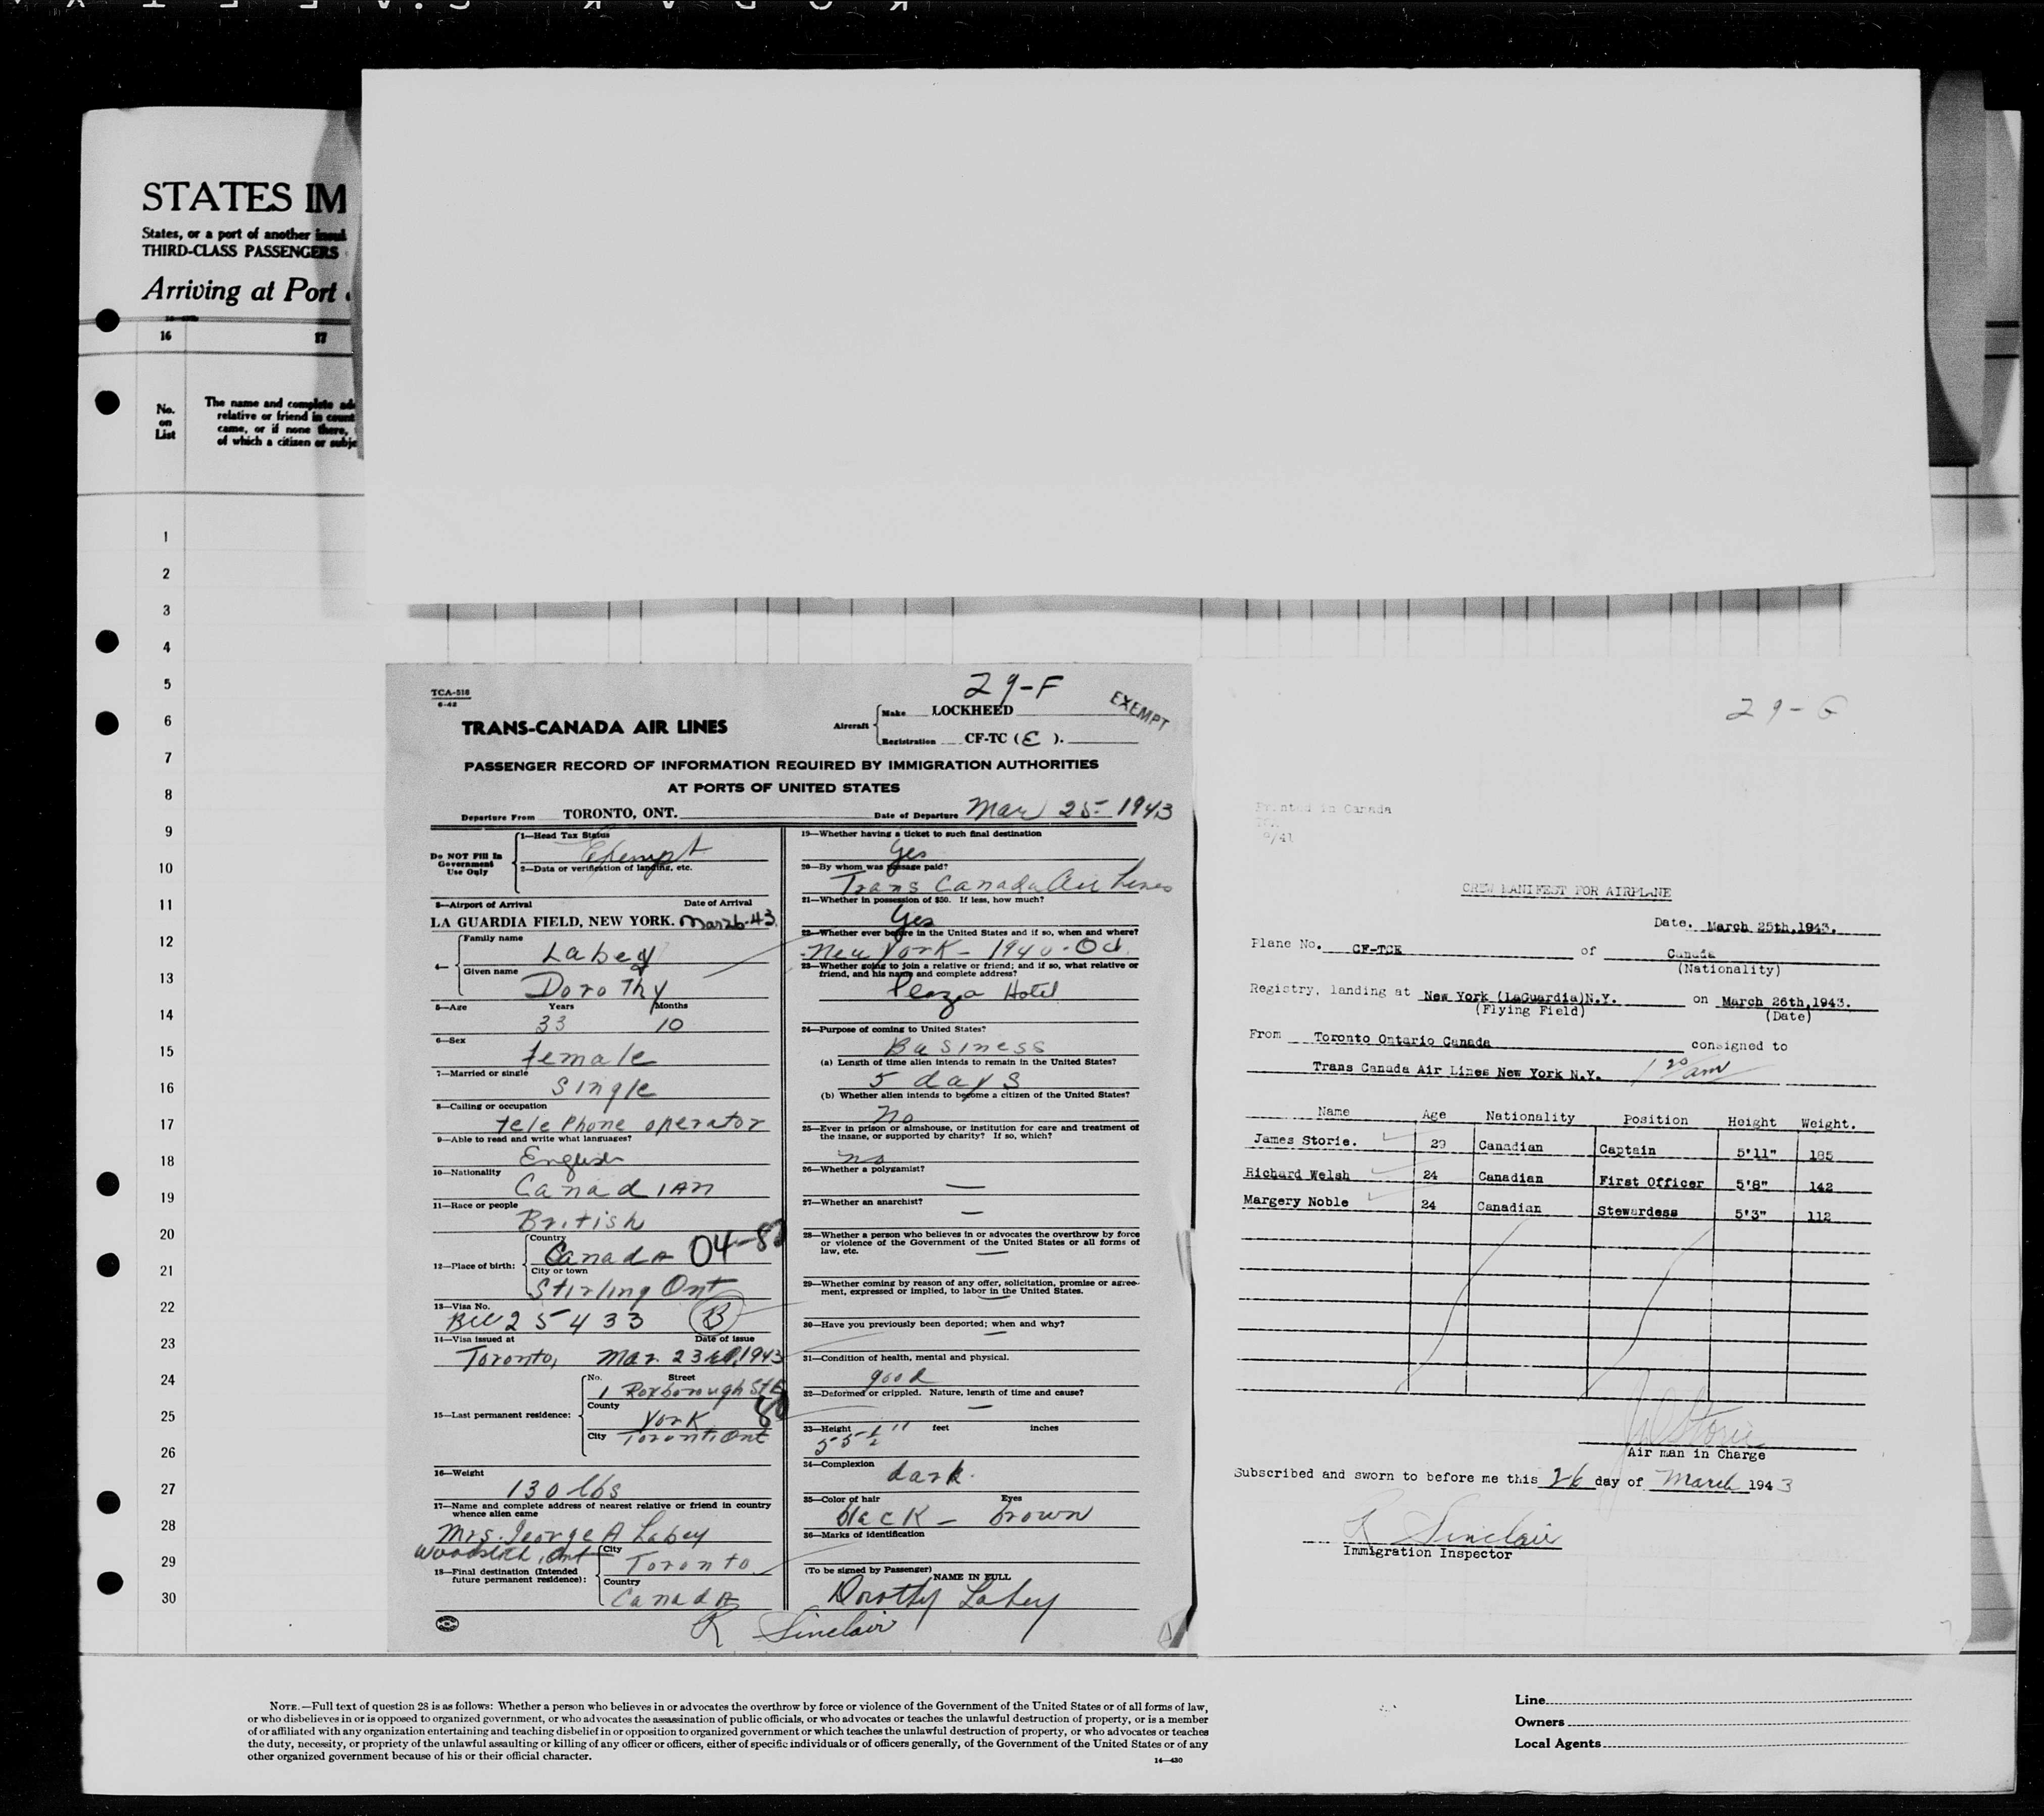 STATES IM
States, or a port of another insul
THIRD-CLASS PASSENGERS
Arriving at Port
16 17
No. on List
The name and complete ad
relative or friend in count
came, or if none there,
of which a citizen or subje
1
2
3
4
5
6
7
8
9
10
11
12
13
14
15
16
17
18
19
20
21
22
23
24
25
26
27
28
29
30
TCA-518
6-42
29-F
EXEMPT
TRANS-CANADA AIR LINES
Aircraft
Make LOCKHEED
Registration CF-TC (E).
PASSENGER RECORD OF INFORMATION REQUIRED BY IMMIGRATION AUTHORITIES
AT PORTS OF UNITED STATES
Departure From TORONTO, ONT. Date of Departure Mar 25 1943
Do NOT Fill In
Government
Use Only
1—Head Tax Status
Exempt
2—Data or verification of landing, etc.
3—Airport of Arrival Date of Arrival
LA GUARDIA FIELD, NEW YORK. Mar 26-43
4—
Family name
Labey
Given name
Dorothy
5—Age Years Months
33 10
6—Sex
female
7—Married or single
single
8—Calling or occupation
telephone operator
9—Able to read and write what languages?
English
10—Nationality
Canadian
11—Race or people
British
12—Place of birth:
Country
Canada 04-8
City or town
Stirling Ont
13—Visa No.
25433 B
14—Visa issued at Date of issue
Toronto, Mar. 23rd, 1943
15—Last permanent residence:
No. Street
1 Roxborough St E
County
York
City Toronto Ont
16—Weight
130 lbs
17—Name and complete address of nearest relative or friend in country
whence alien came
Mrs. George A Labey
Ont
18—Final destination (Intended
future permanent residence):
City
Toronto
Country
Canada
19—Whether having a ticket to such final destination
Yes
20—By whom was passage paid?
Trans Canada Air Lines
21—Whether in possession of $50. If less, how much?
Yes
22—Whether ever before in the United States and if so, when and where?
New York - 1940 - Oct.
23—Whether going to join a relative or friend; and if so, what relative or
friend, and his name and complete address?
Plaza Hotel
24—Purpose of coming to United States?
Business
(a) Length of time alien intends to remain in the United States?
5 days
(b) Whether alien intends to become a citizen of the United States?
No
25—Ever in prison or almshouse, or institution for care and treatment of
the insane, or supported by charity? If so, which?
no
26—Whether a polygamist?
—
27—Whether an anarchist?
—
28—Whether a person who believes in or advocates the overthrow by force
or violence of the Government of the United States or all forms of
law, etc.
—
29—Whether coming by reason of any offer, solicitation, promise or agree-
ment, expressed or implied, to labor in the United States.
—
30—Have you previously been deported; when and why?
—
31—Condition of health, mental and physical.
good
32—Deformed or crippled. Nature, length of time and cause?
—
33—Height feet inches
5 5 1/2"
34—Complexion
dark.
35—Color of hair Eyes
black - brown
36—Marks of identification
(To be signed by Passenger) NAME IN FULL
Dorothy Labey
R Sinclair
29-G
Printed in Canada
9/41
CREW MANIFEST FOR AIRPLANE
Date. March 25th,1943.
Plane No. CF-TCE of Canada
(Nationality)
Registry, landing at New York (LaGuardia)N.Y. on March 26th,1943.
(Flying Field) (Date)
From Toronto Ontario Canada consigned to
Trans Canada Air Lines New York N.Y. 1 20 am
Name Age Nationality Position Height Weight.
James Storie. 29 Canadian Captain 5'11" 185
Richard Welsh 24 Canadian First Officer 5'8" 142
Margery Noble 24 Canadian Stewardess 5'3" 112
Storie
Air man in Charge
Subscribed and sworn to before me this 26 day of March 1943
R Sinclair
Immigration Inspector
NOTE.—Full text of question 28 is as follows: Whether a person who believes in or advocates the overthrow by force or violence of the Government of the United States or of all forms of law,
or who disbelieves in or is opposed to organized government, or who advocates the assassination of public officials, or who advocates or teaches the unlawful destruction of property, or is a member
of or affiliated with any organization entertaining and teaching disbelief in or opposition to organized government or which teaches the unlawful destruction of property, or who advocates or teaches
the duty, necessity, or propriety of the unlawful assaulting or killing of any officer or officers, either of specific individuals or of officers generally, of the Government of the United States or of any
other organized government because of his or their official character.
14—430
Line
Owners
Local Agents